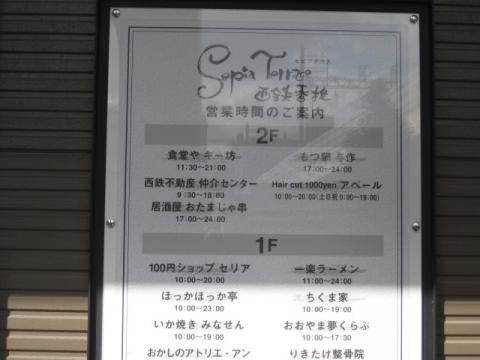 セピアテラス
Sepia Terrace
西鉄香椎
営業時間のご案内
2F
食堂や キー坊
11:30~21:00
もつ鍋 与作
17:00~24:00
西鉄不動産 仲介センター
9:30~18:00
Hair cut 1000yen アベール
10:00~20:00(土日祝9:00~19:00)
居酒屋 おたまじゃ串
17:00~24:00
1F
100円ショップ セリア
10:00~20:00
一楽ラーメン
11:00~24:00
ほっかほっか亭
10:00~23:00
ちくま家
10:00~19:00
いか焼き みなせん
10:00~19:00
おおやま夢くらぶ
10:00~17:30
おかしのアトリエ・アン
りきたけ整骨院